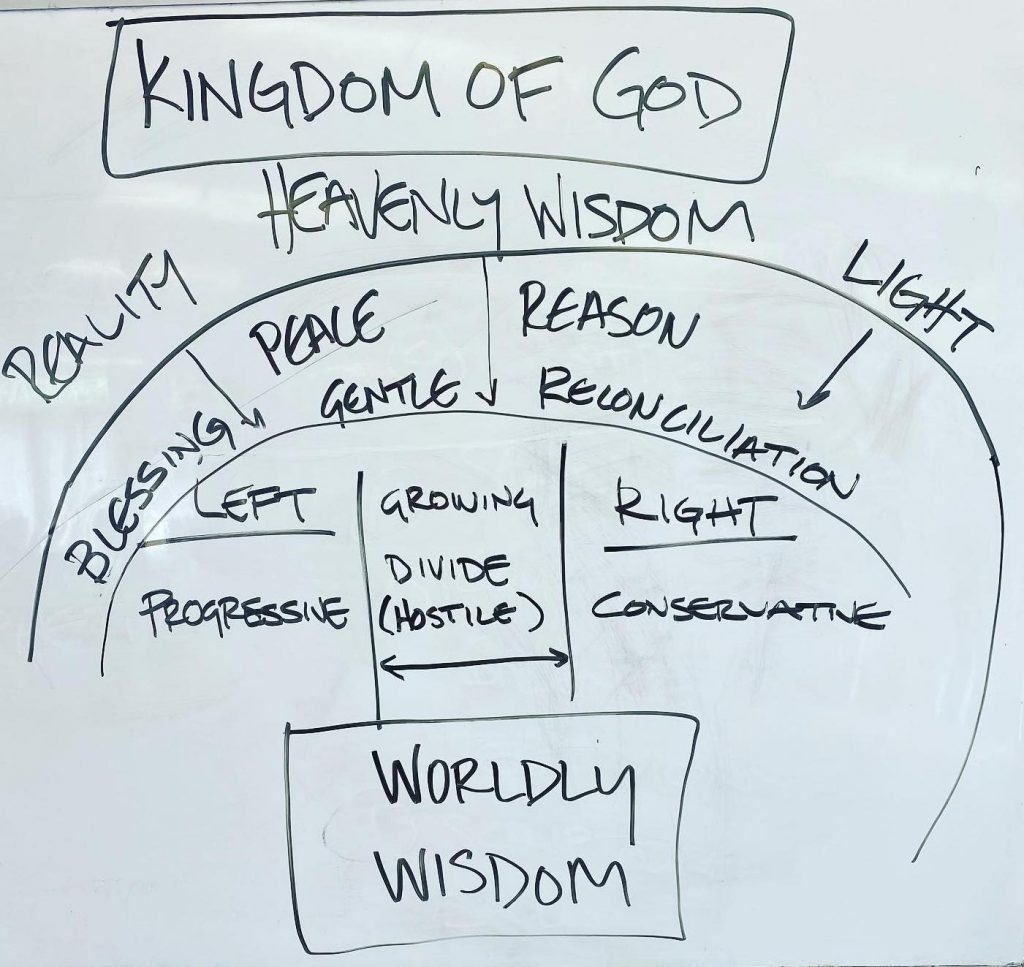 KINGDOM OF GOD
HEAVENLY WISDOM
REALITY
LIGHT
PEACE
REASON
GENTLE
RECONCILIATION
BLESSING
LEFT
GROWING
DIVIDE
(HOSTILE)
RIGHT
PROGRESSIVE
CONSERVATIVE
WORLDLY
WISDOM